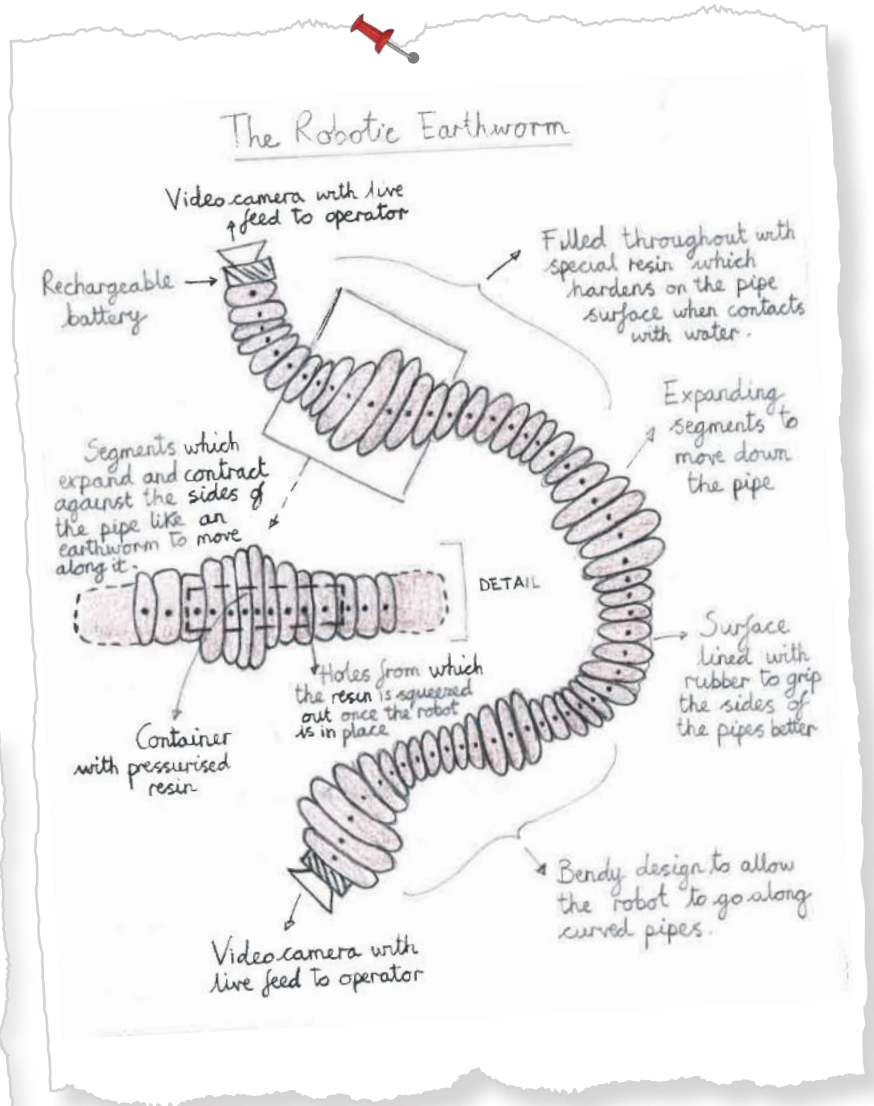 The Robotic Earthworm
Video camera with live
feed to operator
Rechargeable
battery
Filled throughout with
special resin which
hardens on the pipe
surface when contacts
with water.
Expanding
segments to
move down
the pipe
Segments which
expand and contract
against the sides of
the pipe like an
earthworm to move
along it.
DETAIL
Surface
lined with
rubber to grip
the sides of
the pipes better
Holes from which
the resin is squeezed
out once the robot
is in place
Container
with pressurised
resin
Bendy design to allow
the robot to go along
curved pipes.
Video camera with
live feed to operator